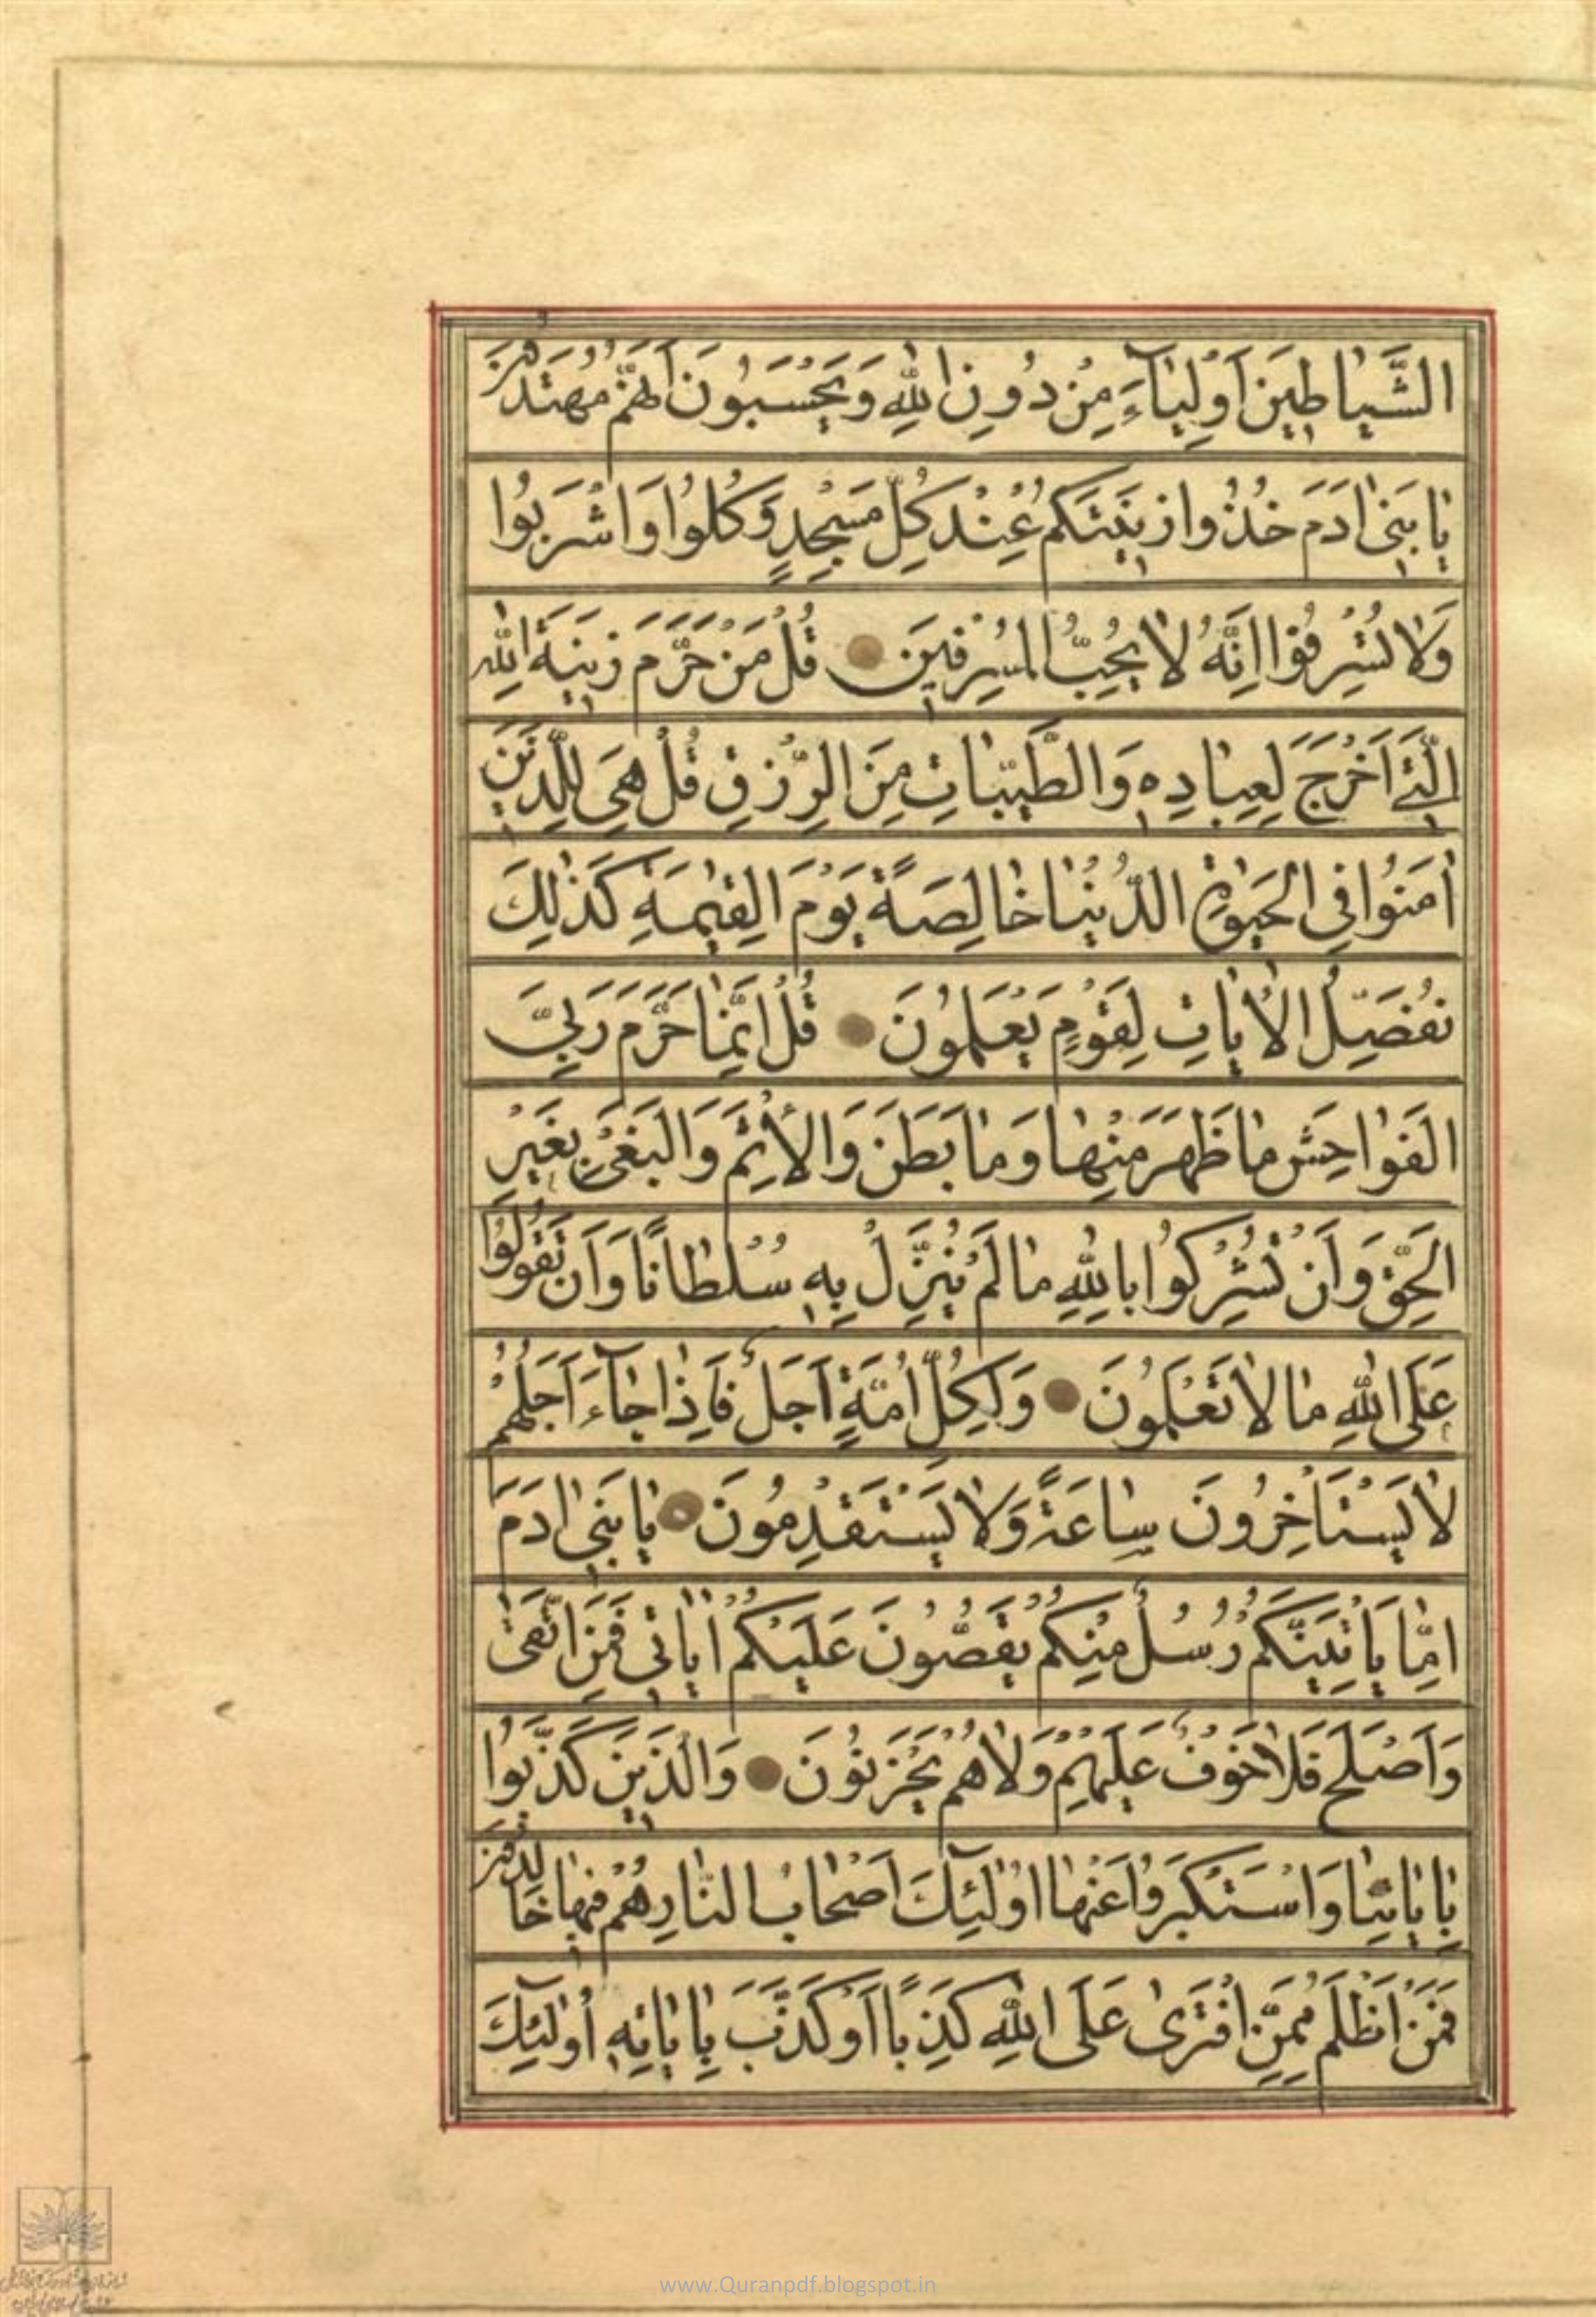 الشَّيَاطِينَ أَوْلِيَاءَ مِنْ دُونِ اللهِ وَيَحْسَبُونَ أَنَّهُمْ مُهْتَدُونَ
يَابَنِي اٰدَمَ خُذُوا زِينَتَكُمْ عِنْدَ كُلِّ مَسْجِدٍ وَكُلُوا وَاشْرَبُوا
وَلَا تُسْرِفُوا اِنَّهُ لَا يُحِبُّ الْمُسْرِفِينَ قُلْ مَنْ حَرَّمَ زِينَةَ اللهِ
الَّتِي اَخْرَجَ لِعِبَادِهِ وَالطَّيِّبَاتِ مِنَ الرِّزْقِ قُلْ هِيَ لِلَّذِينَ
اٰمَنُوا فِي الْحَيٰوةِ الدُّنْيَا خَالِصَةً يَوْمَ الْقِيٰمَةِ كَذٰلِكَ
نُفَصِّلُ الْاٰيَاتِ لِقَوْمٍ يَعْلَمُونَ قُلْ اِنَّمَا حَرَّمَ رَبِّيَ
الْفَوَاحِشَ مَا ظَهَرَ مِنْهَا وَمَا بَطَنَ وَالْاِثْمَ وَالْبَغْيَ بِغَيْرِ
الْحَقِّ وَاَنْ تُشْرِكُوا بِاللهِ مَا لَمْ يُنَزِّلْ بِهِ سُلْطَانًا وَاَنْ تَقُولُوا
عَلَى اللهِ مَا لَا تَعْلَمُونَ وَلِكُلِّ اُمَّةٍ اَجَلٌ فَاِذَا جَاءَ اَجَلُهُمْ
لَا يَسْتَاْخِرُونَ سَاعَةً وَلَا يَسْتَقْدِمُونَ يَابَنِي اٰدَمَ
اِمَّا يَاْتِيَنَّكُمْ رُسُلٌ مِنْكُمْ يَقُصُّونَ عَلَيْكُمْ اٰيَاتِي فَمَنِ اتَّقٰى
وَاَصْلَحَ فَلَا خَوْفٌ عَلَيْهِمْ وَلَا هُمْ يَحْزَنُونَ وَالَّذِينَ كَذَّبُوا
بِاٰيَاتِنَا وَاسْتَكْبَرُوا عَنْهَا اُولٰئِكَ اَصْحَابُ النَّارِ هُمْ فِيهَا خَالِدُونَ
فَمَنْ اَظْلَمُ مِمَّنِ افْتَرٰى عَلَى اللهِ كَذِبًا اَوْ كَذَّبَ بِاٰيَاتِهِ اُولٰئِكَ
www.Quranpdf.blogspot.in